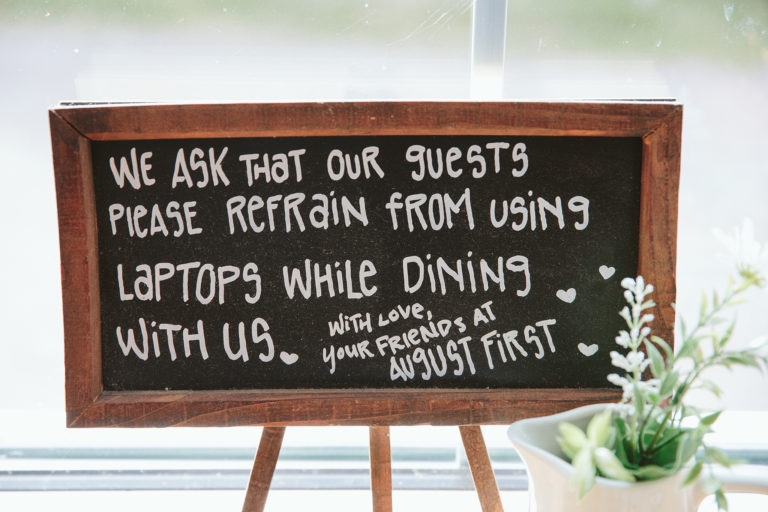 WE ASK THAT OUR GUESTS
PLEASE REFRAIN FROM USING
LAPTOPS WHILE DINING
WITH US.
WITH LOVE,
YOUR FRIENDS AT
AUGUST FIRST